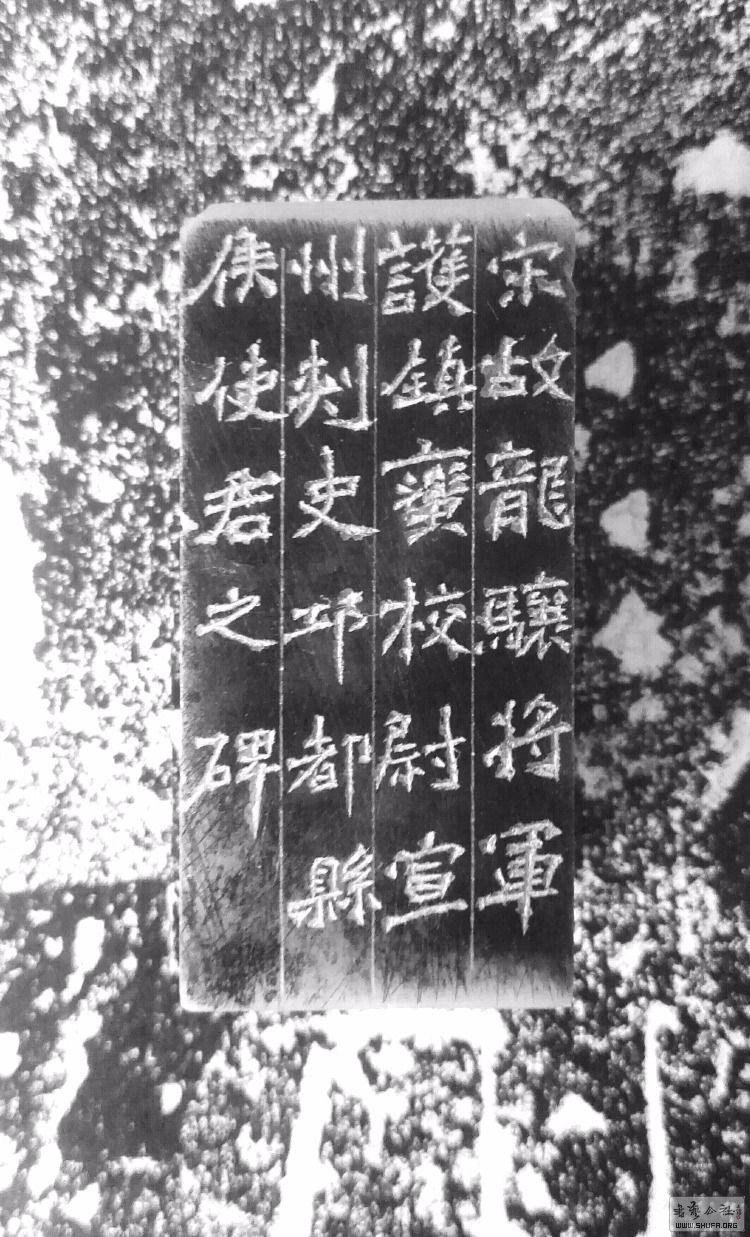 宋故龍驤将軍
護鎮蠻校尉宣
州刺史邛都縣
侯使君之碑
書藝公社
WWW.SHUFA.ORG